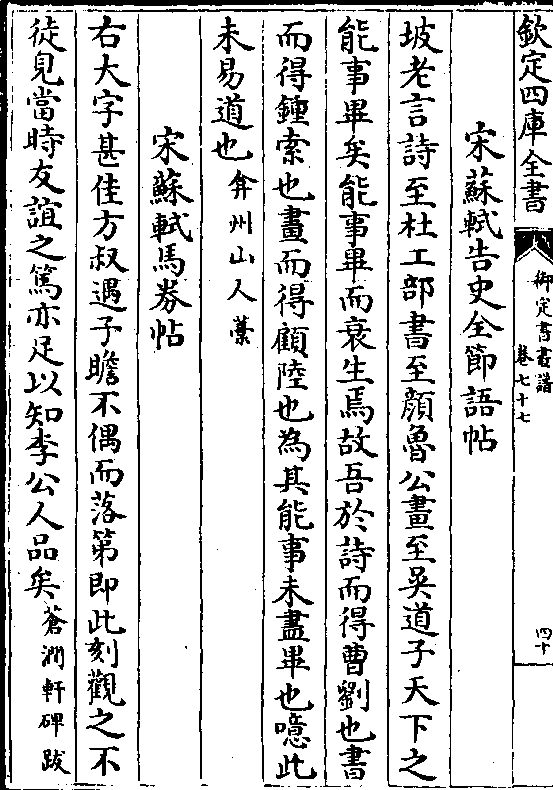 欽定四庫全書
御定書畫譜
卷七十七
四十
宋蘇軾告史全節語帖
坡老言詩至杜工部書至顏魯公畫至吳道子天下之
能事畢矣能事畢而衰生焉故吾於詩而得曹劉也書
而得鍾索也畫而得顧陸也為其能事未盡畢也噫此
未易道也弇州山人藁
宋蘇軾馬券帖
右大字甚佳方叔遇子瞻不偶而落第即此刻觀之不
徒見當時友誼之篤亦足以知李公人品矣蒼潤軒碑跋